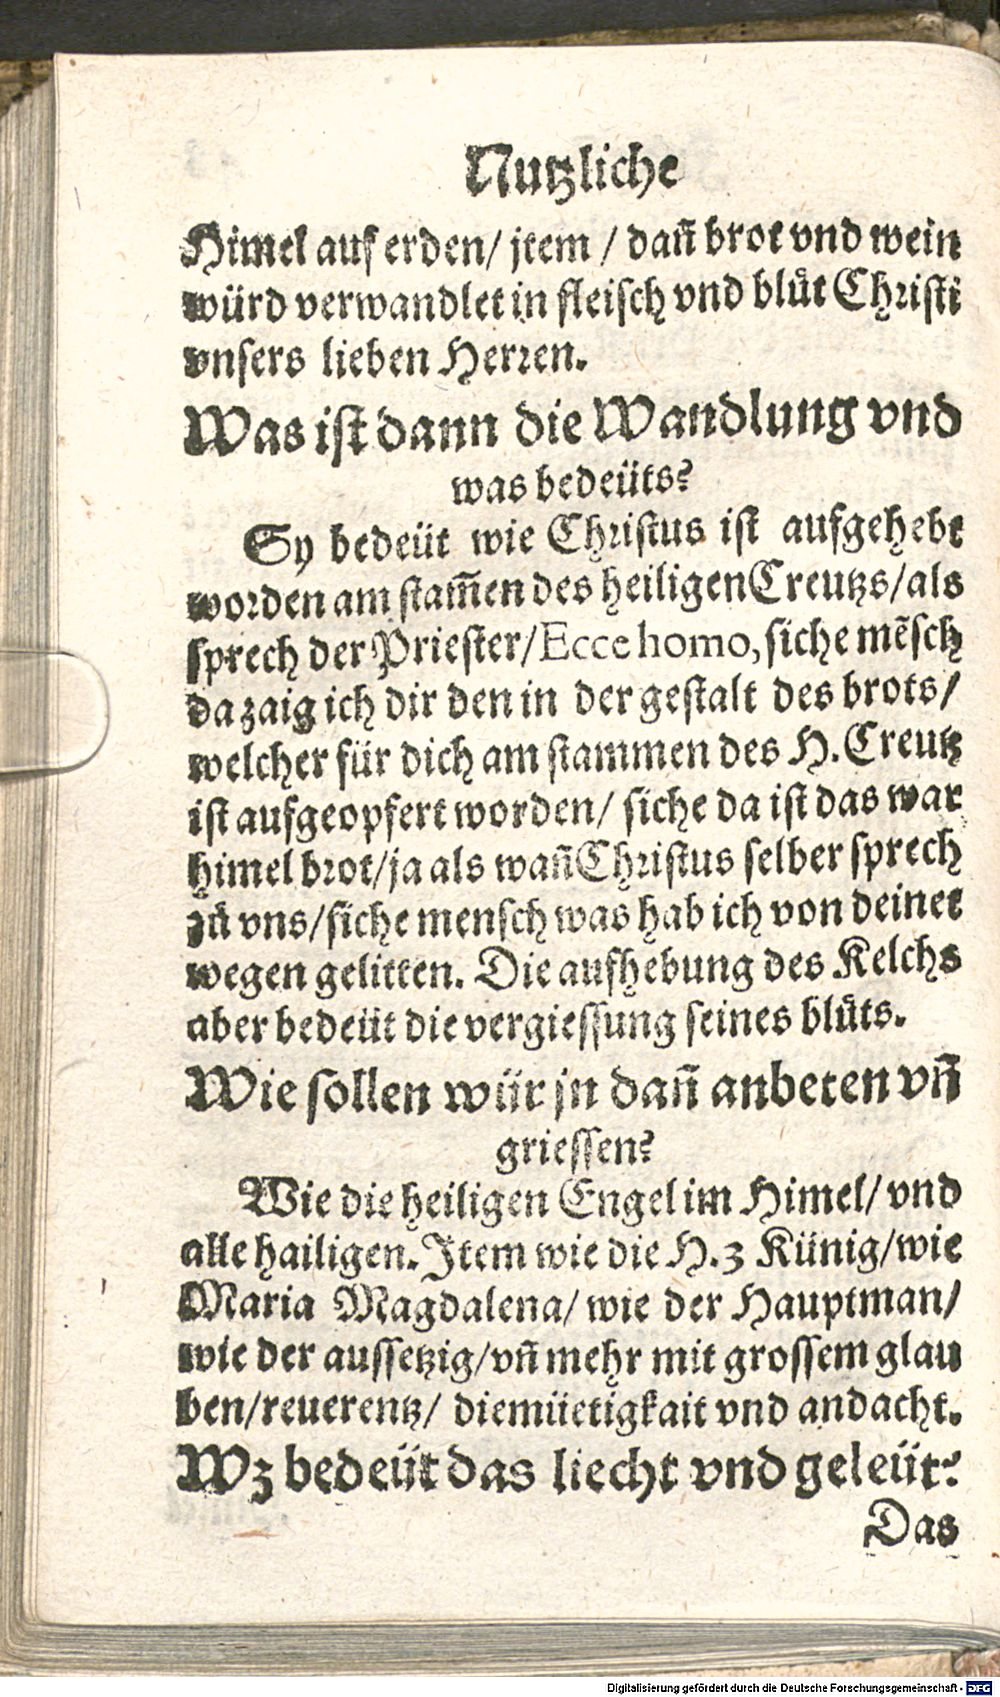 Nutzliche
Himel auf erden/ jtem / dañ brot vnd wein
würd verwandlet in fleisch vnd blůt Christi
vnsers lieben Herren.
Was ist dann die Wandlung vnd
was bedeüts?
Sy bedeüt wie Christus ist aufgehebt
worden am stam̃en des heiligen Creutzs/als
sprech der Priester/Ecce homo, siche mẽsch
da zaig ich dir den in der gestalt des brots/
welcher für dich am stammen des H. Creutz
ist aufgeopfert worden/ siche da ist das war
himel brot/ja als wañ Christus selber sprech
zů vns/siche mensch was hab ich von deinet
wegen gelitten. Die aufhebung des Kelchs
aber bedeüt die vergiessung seines blůts.
Wie sollen wür jn dañ anbeten vñ
griessen?
Wie die heiligen Engel im Himel/ vnd
alle hailigen. Item wie die H. 3 Künig/wie
Maria Magdalena/ wie der Hauptman/
wie der aussetzig/vñ mehr mit grossem glau
ben/reuerentz/ diemüetigkait vnd andacht.
Wz bedeüt das liecht vnd geleüt?
Das
Digitalisierung gefördert durch die Deutsche Forschungsgemeinschaft - DFG